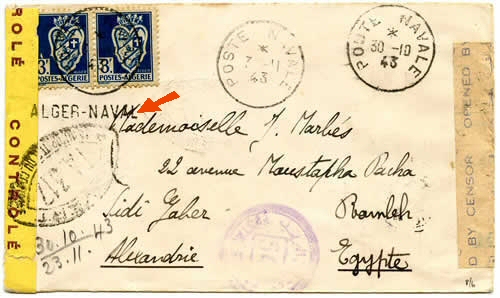 TRÔLÉ CONTRÔLÉ
3F 3F
POSTES-ALGERIE POSTES-ALGERIE
POSTE NAVALE
*
-11
43
POSTE NAVALE
*
30-10
43
ALGER-NAVAL
Mademoiselle J. Marbés
22 avenue Moustapha Pacha
Sidi Gaber Ramleh
Alexandrie Egypte
30.10 43
23.11.
D BY CENSOR OPENED BY